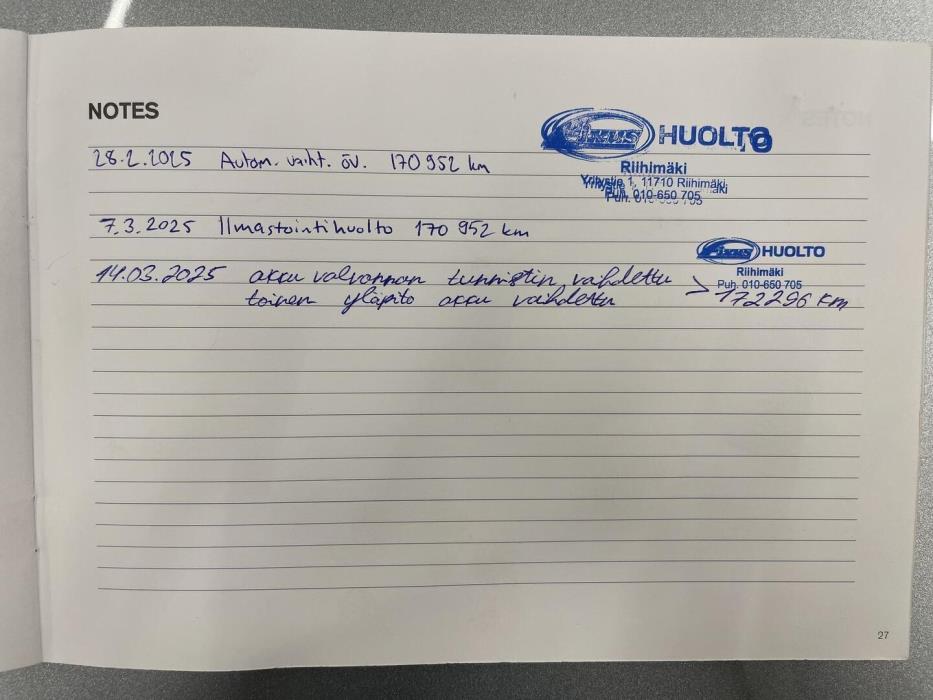 NOTES
Fixus HUOLTO
28.2.2025 Autom. vaiht. öv. 170 952 km
Riihimäki
Yritystie 1, 11710 Riihimäki
Puh. 010-650 705
7.3.2025 Ilmastointihuolto 170 952 km
Fixus HUOLTO
Riihimäki
14.03.2025 akku valvonnan tunnistin vaihdettu
Puh. 010-650 705
toinen ylläpito akku vaihdettu > 172296 km
27